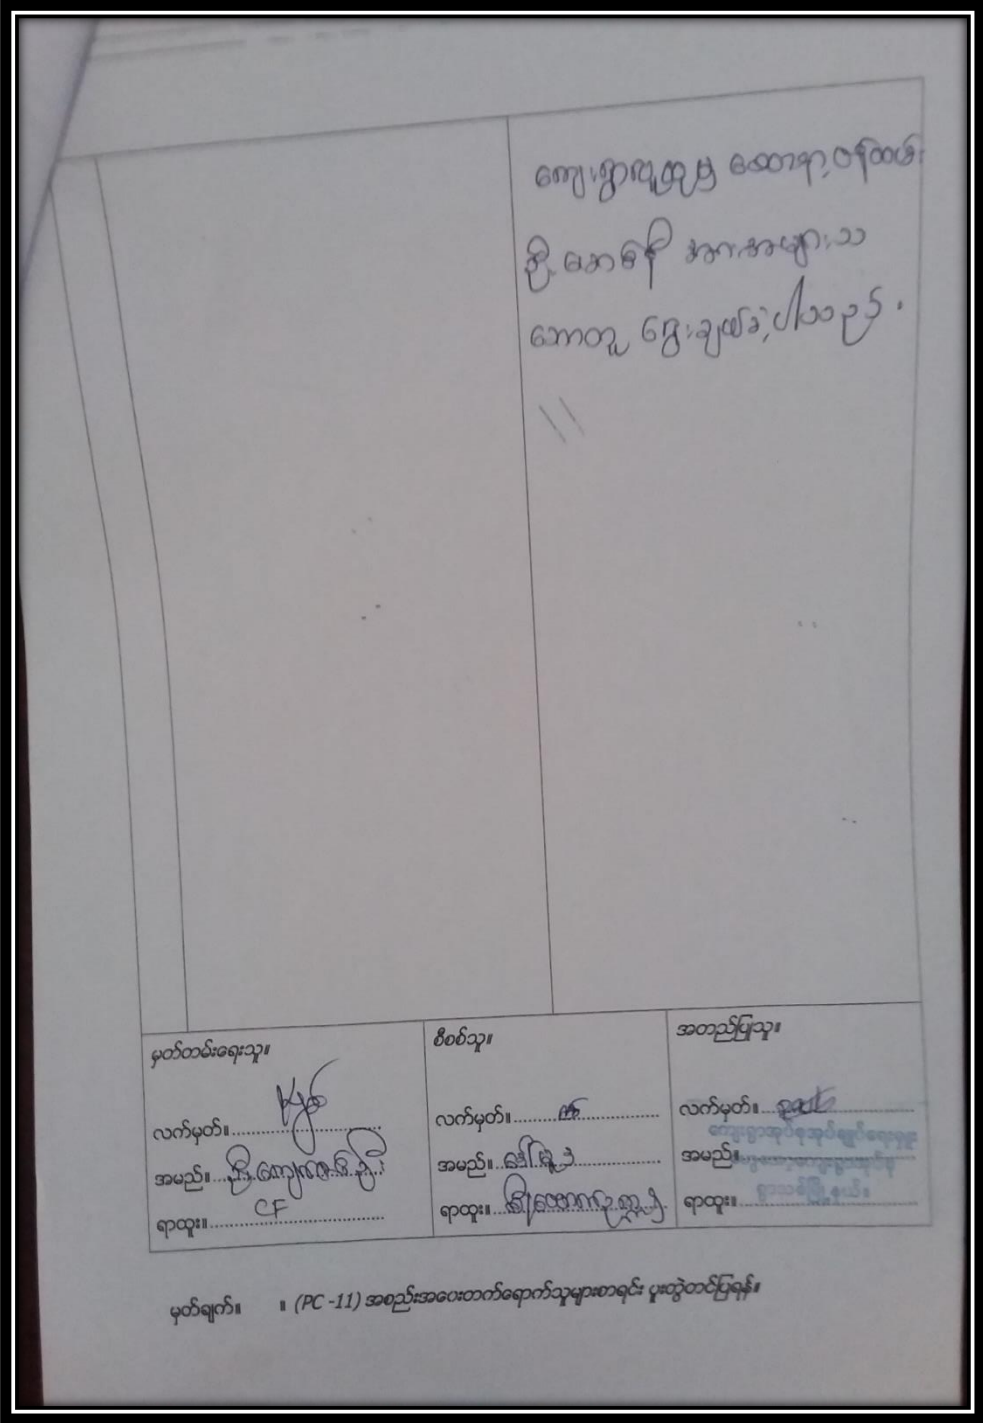 ကျေးရွာလူထုမှ စေတနာ့ဝန်ထမ်း
ဦးဆေမိနီ အား အများသ
ဘောတူ ရွေးချယ်ခဲ့ပါသည်။
မှတ်တမ်းရေးသူ။
လက်မှတ်။
အမည်။
ရာထူး။ CF
စီစစ်သူ။
လက်မှတ်။
အမည်။
ရာထူး။
အတည်ပြုသူ။
လက်မှတ်။
ကျေးရွာအုပ်စုအုပ်ချုပ်ရေးမှူး
အမည်။
ရာထူး။
မှတ်ချက်။ ။ (PC -11) အစည်းအဝေးတက်ရောက်သူများစာရင်း ပူးတွဲတင်ပြရန်။